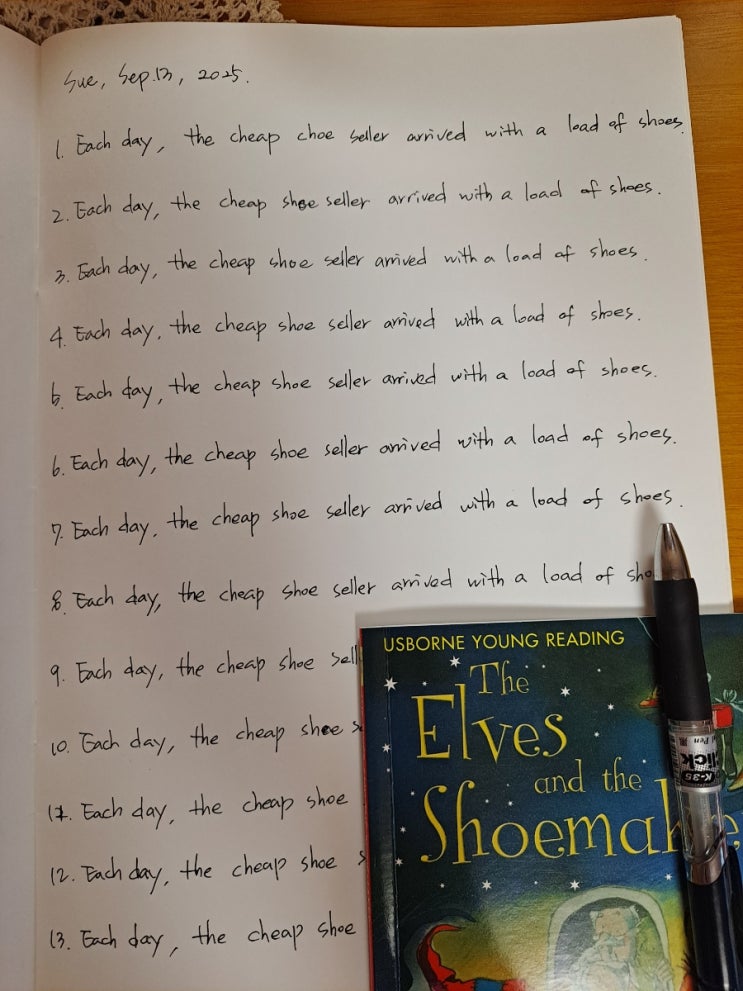 Sue, Sep.13, 2025.
1. Each day, the cheap choe seller arrived with a load of shoes.
2. Each day, the cheap shoe seller arrived with a load of shoes.
3. Each day, the cheap shoe seller arrived with a load of shoes.
4. Each day, the cheap shoe seller arrived with a load of shoes.
5. Each day, the cheap shoe seller arrived with a load of shoes.
6. Each day, the cheap shoe seller arrived with a load of shoes.
7. Each day, the cheap shoe seller arrived with a load of shoes.
8. Each day, the cheap shoe seller arrived with a load of sho
9. Each day, the cheap shoe sell
10. Each day, the cheap shoe s
11. Each day, the cheap shoe
12. Each day, the cheap shoe s
13. Each day, the cheap shoe
USBORNE YOUNG READING
The
Elves
and the
Shoemake
K-35